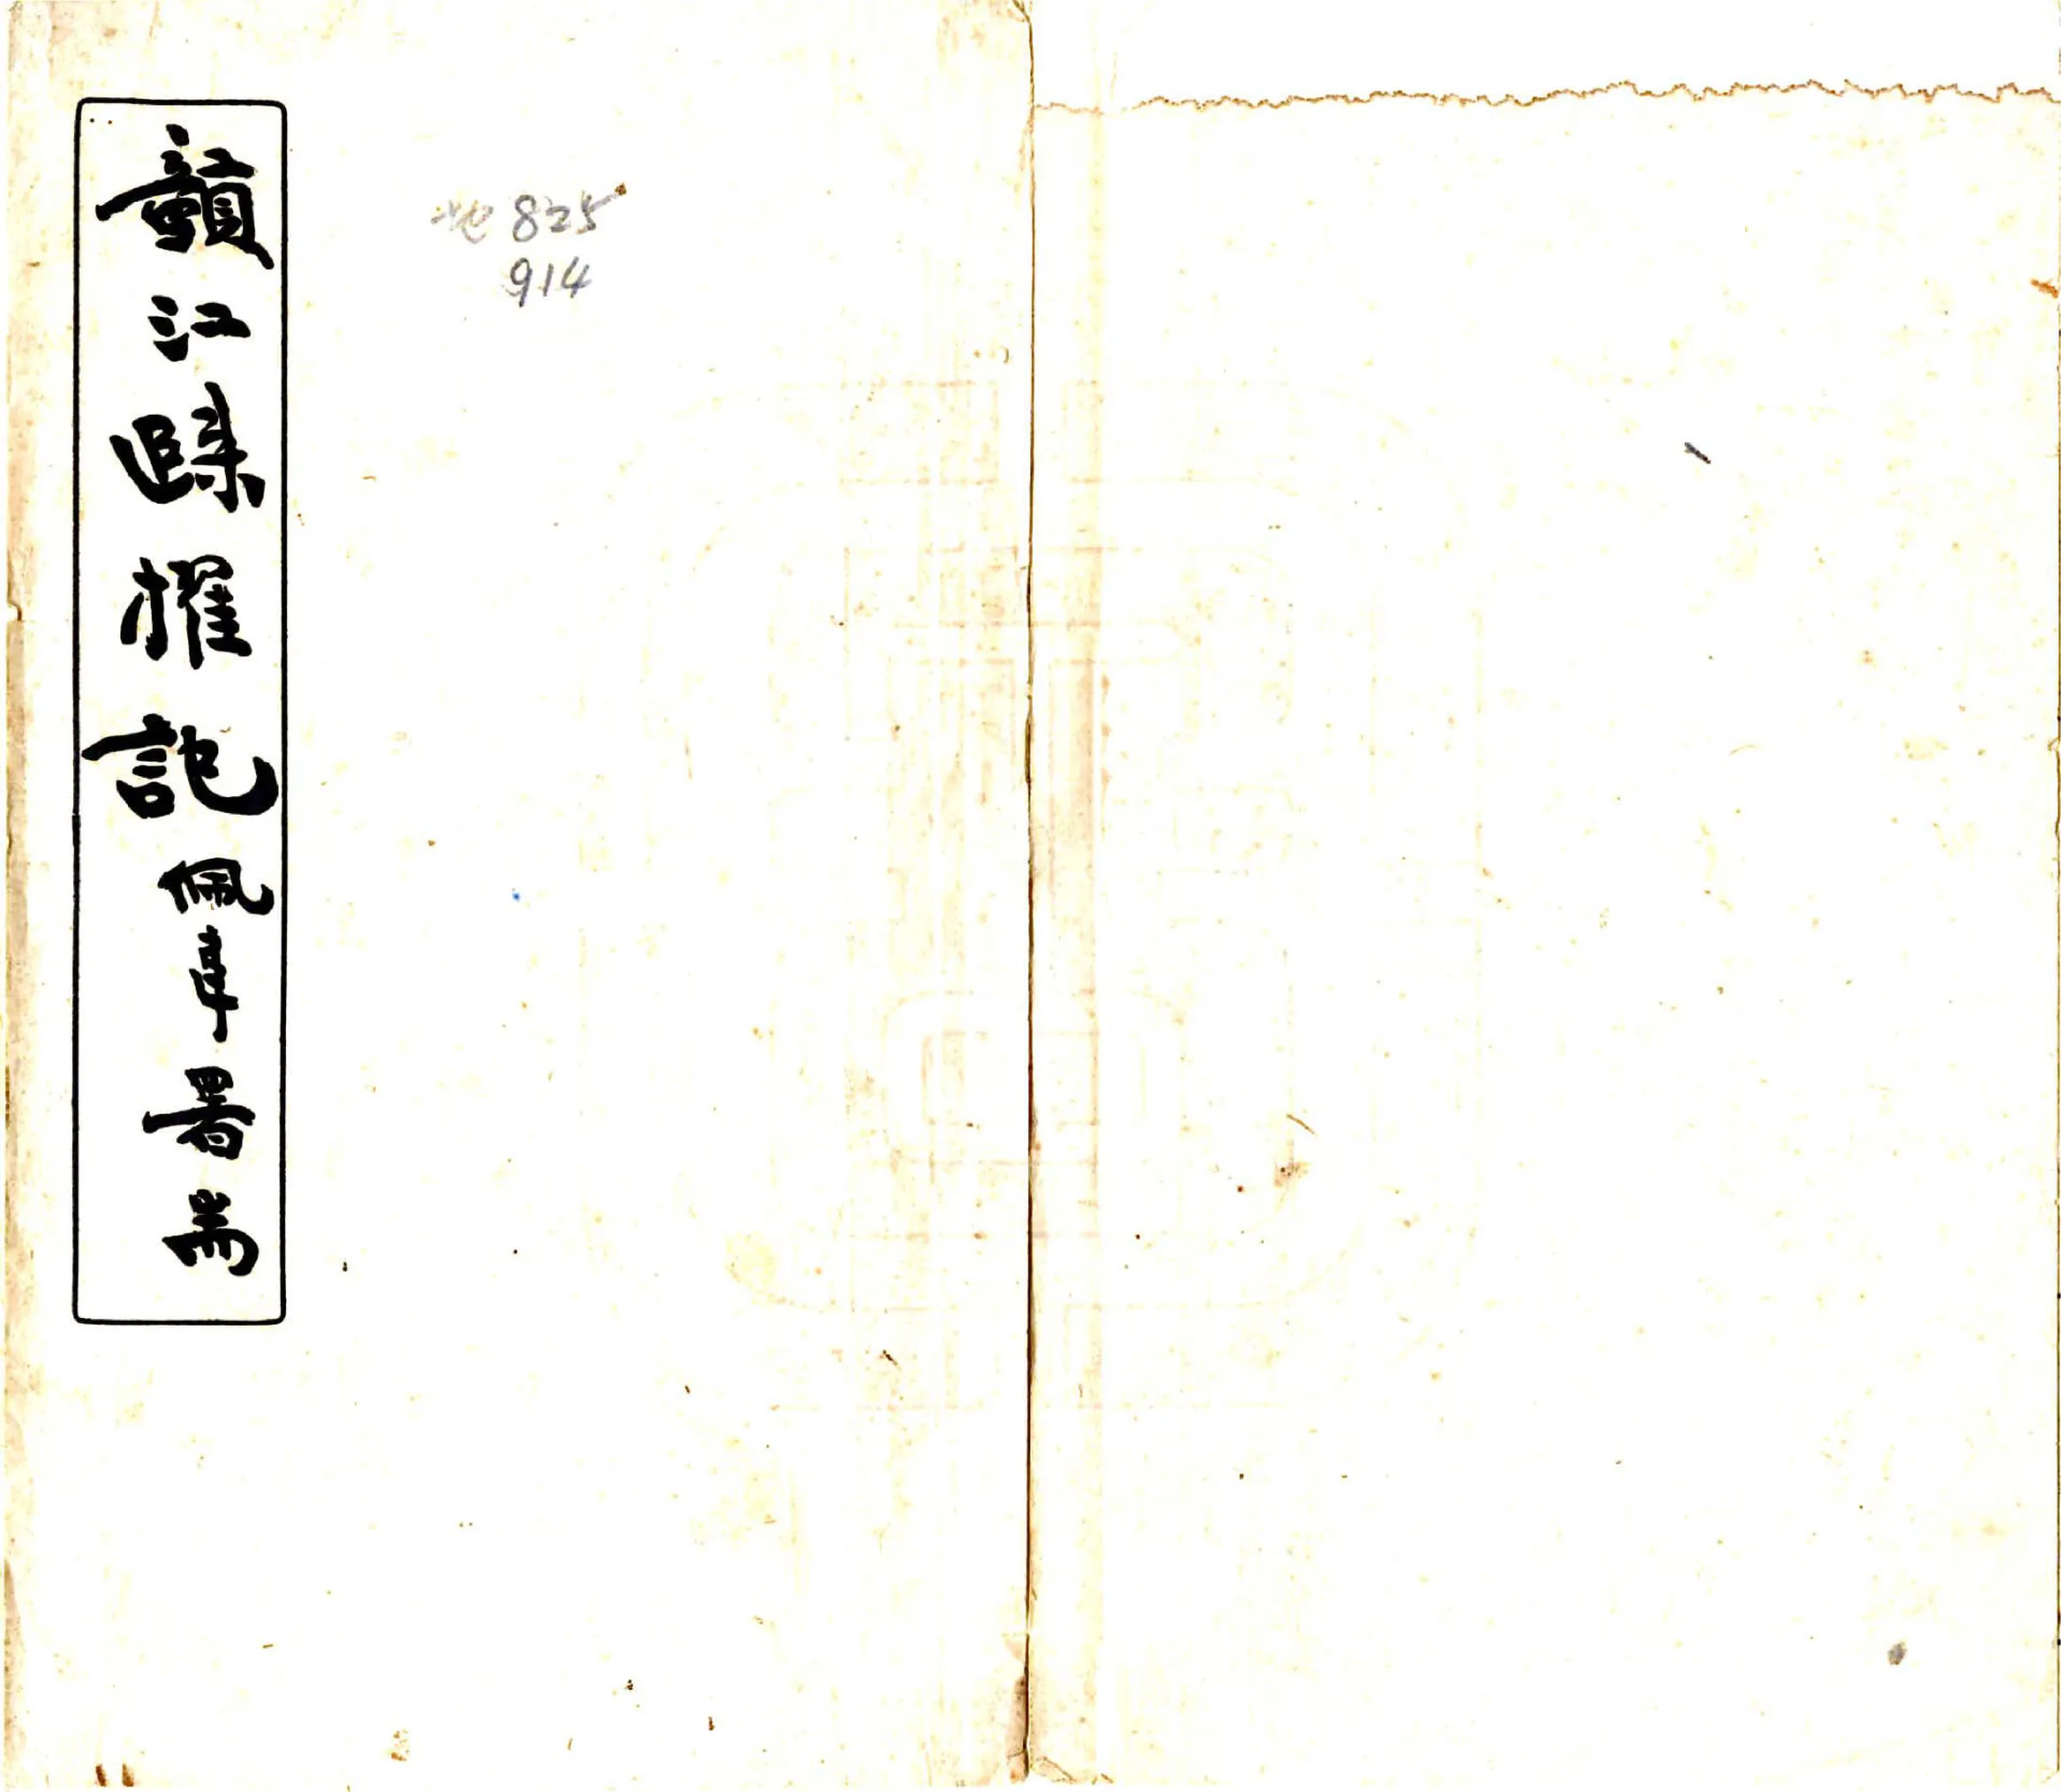 贛江歸櫂記佩韋署耑
地825
914